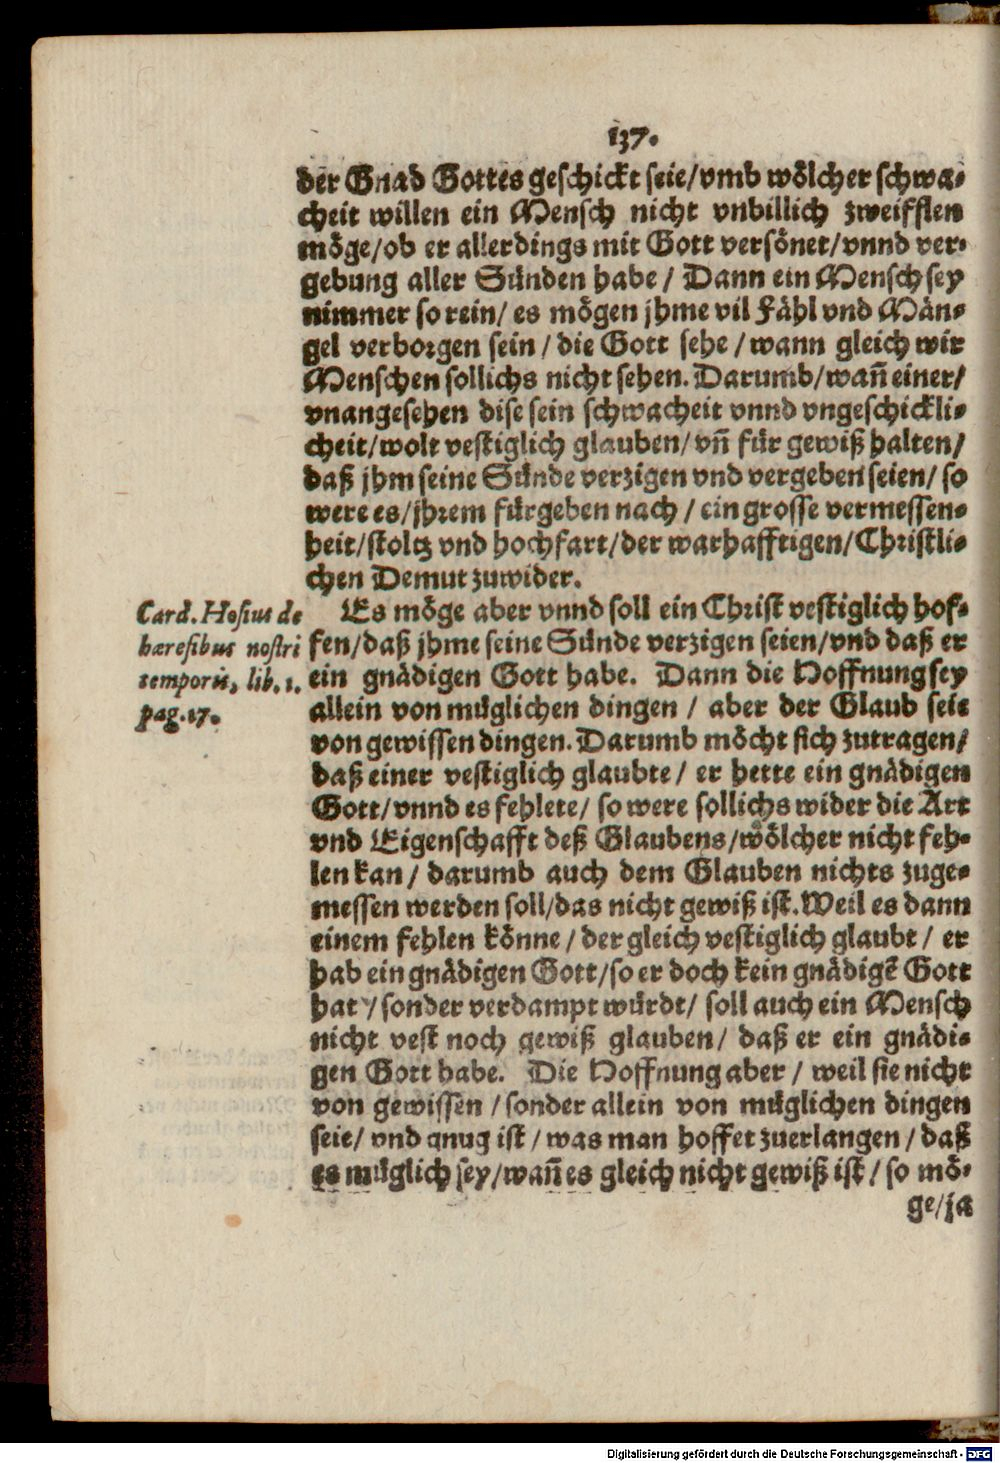 137.
der Gnad Gottes geschickt seie/vmb wölcher schwa-
cheit willen ein Mensch nicht vnbillich zweifflen
möge/ob er allerdings mit Gott versönet/vnnd ver-
gebung aller Sünden habe / Dann ein Mensch sey
nimmer so rein/ es mögen jhme vil Fähl vnd Män-
gel verborgen sein / die Gott sehe / wann gleich wir
Menschen sollichs nicht sehen. Darumb/wañ einer/
vnangesehen dise sein schwacheit vnnd vngeschickli-
cheit/wolt vestiglich glauben/ vñ für gewiß halten/
daß jhm seine Sünde verzigen vnd vergeben seien/ so
were es/jhrem fürgeben nach / ein grosse vermessen-
heit/stoltz vnd hochfart/der warhafftigen/Christli-
chen Demut zuwider.
Es möge aber vnnd soll ein Christ vestiglich hof-
fen/daß jhme seine Sünde verzigen seien/vnd daß er
ein gnädigen Gott habe. Dann die Hoffnung sey
allein von müglichen dingen / aber der Glaub seie
von gewissen dingen. Darumb möcht sich zutragen/
daß einer vestiglich glaubte/ er hette ein gnädigen
Gott/vnnd es fehlete/ so were sollichs wider die Art
vnd Eigenschafft deß Glaubens/wölcher nicht feh-
len kan / darumb auch dem Glauben nichts zuge-
messen werden soll/das nicht gewiß ist. Weil es dann
einem fehlen könne / der gleich vestiglich glaubt / er
hab ein gnädigen Gott/so er doch kein gnädigẽ Gott
hat / sonder verdampt würdt/ soll auch ein Mensch
nicht vest noch gewiß glauben/ daß er ein gnädi-
gen Gott habe. Die Hoffnung aber / weil sie nicht
von gewissen / sonder allein von müglichen dingen
seie/ vnd gnug ist / was man hoffet zuerlangen / daß
es müglich sey/wañ es gleich nicht gewiß ist / so mö-
ge/ja
Card. Hosius de
hæresibus nostri
temporis, lib. 1.
pag. 17.
Digitalisierung gefördert durch die Deutsche Forschungsgemeinschaft - DFG